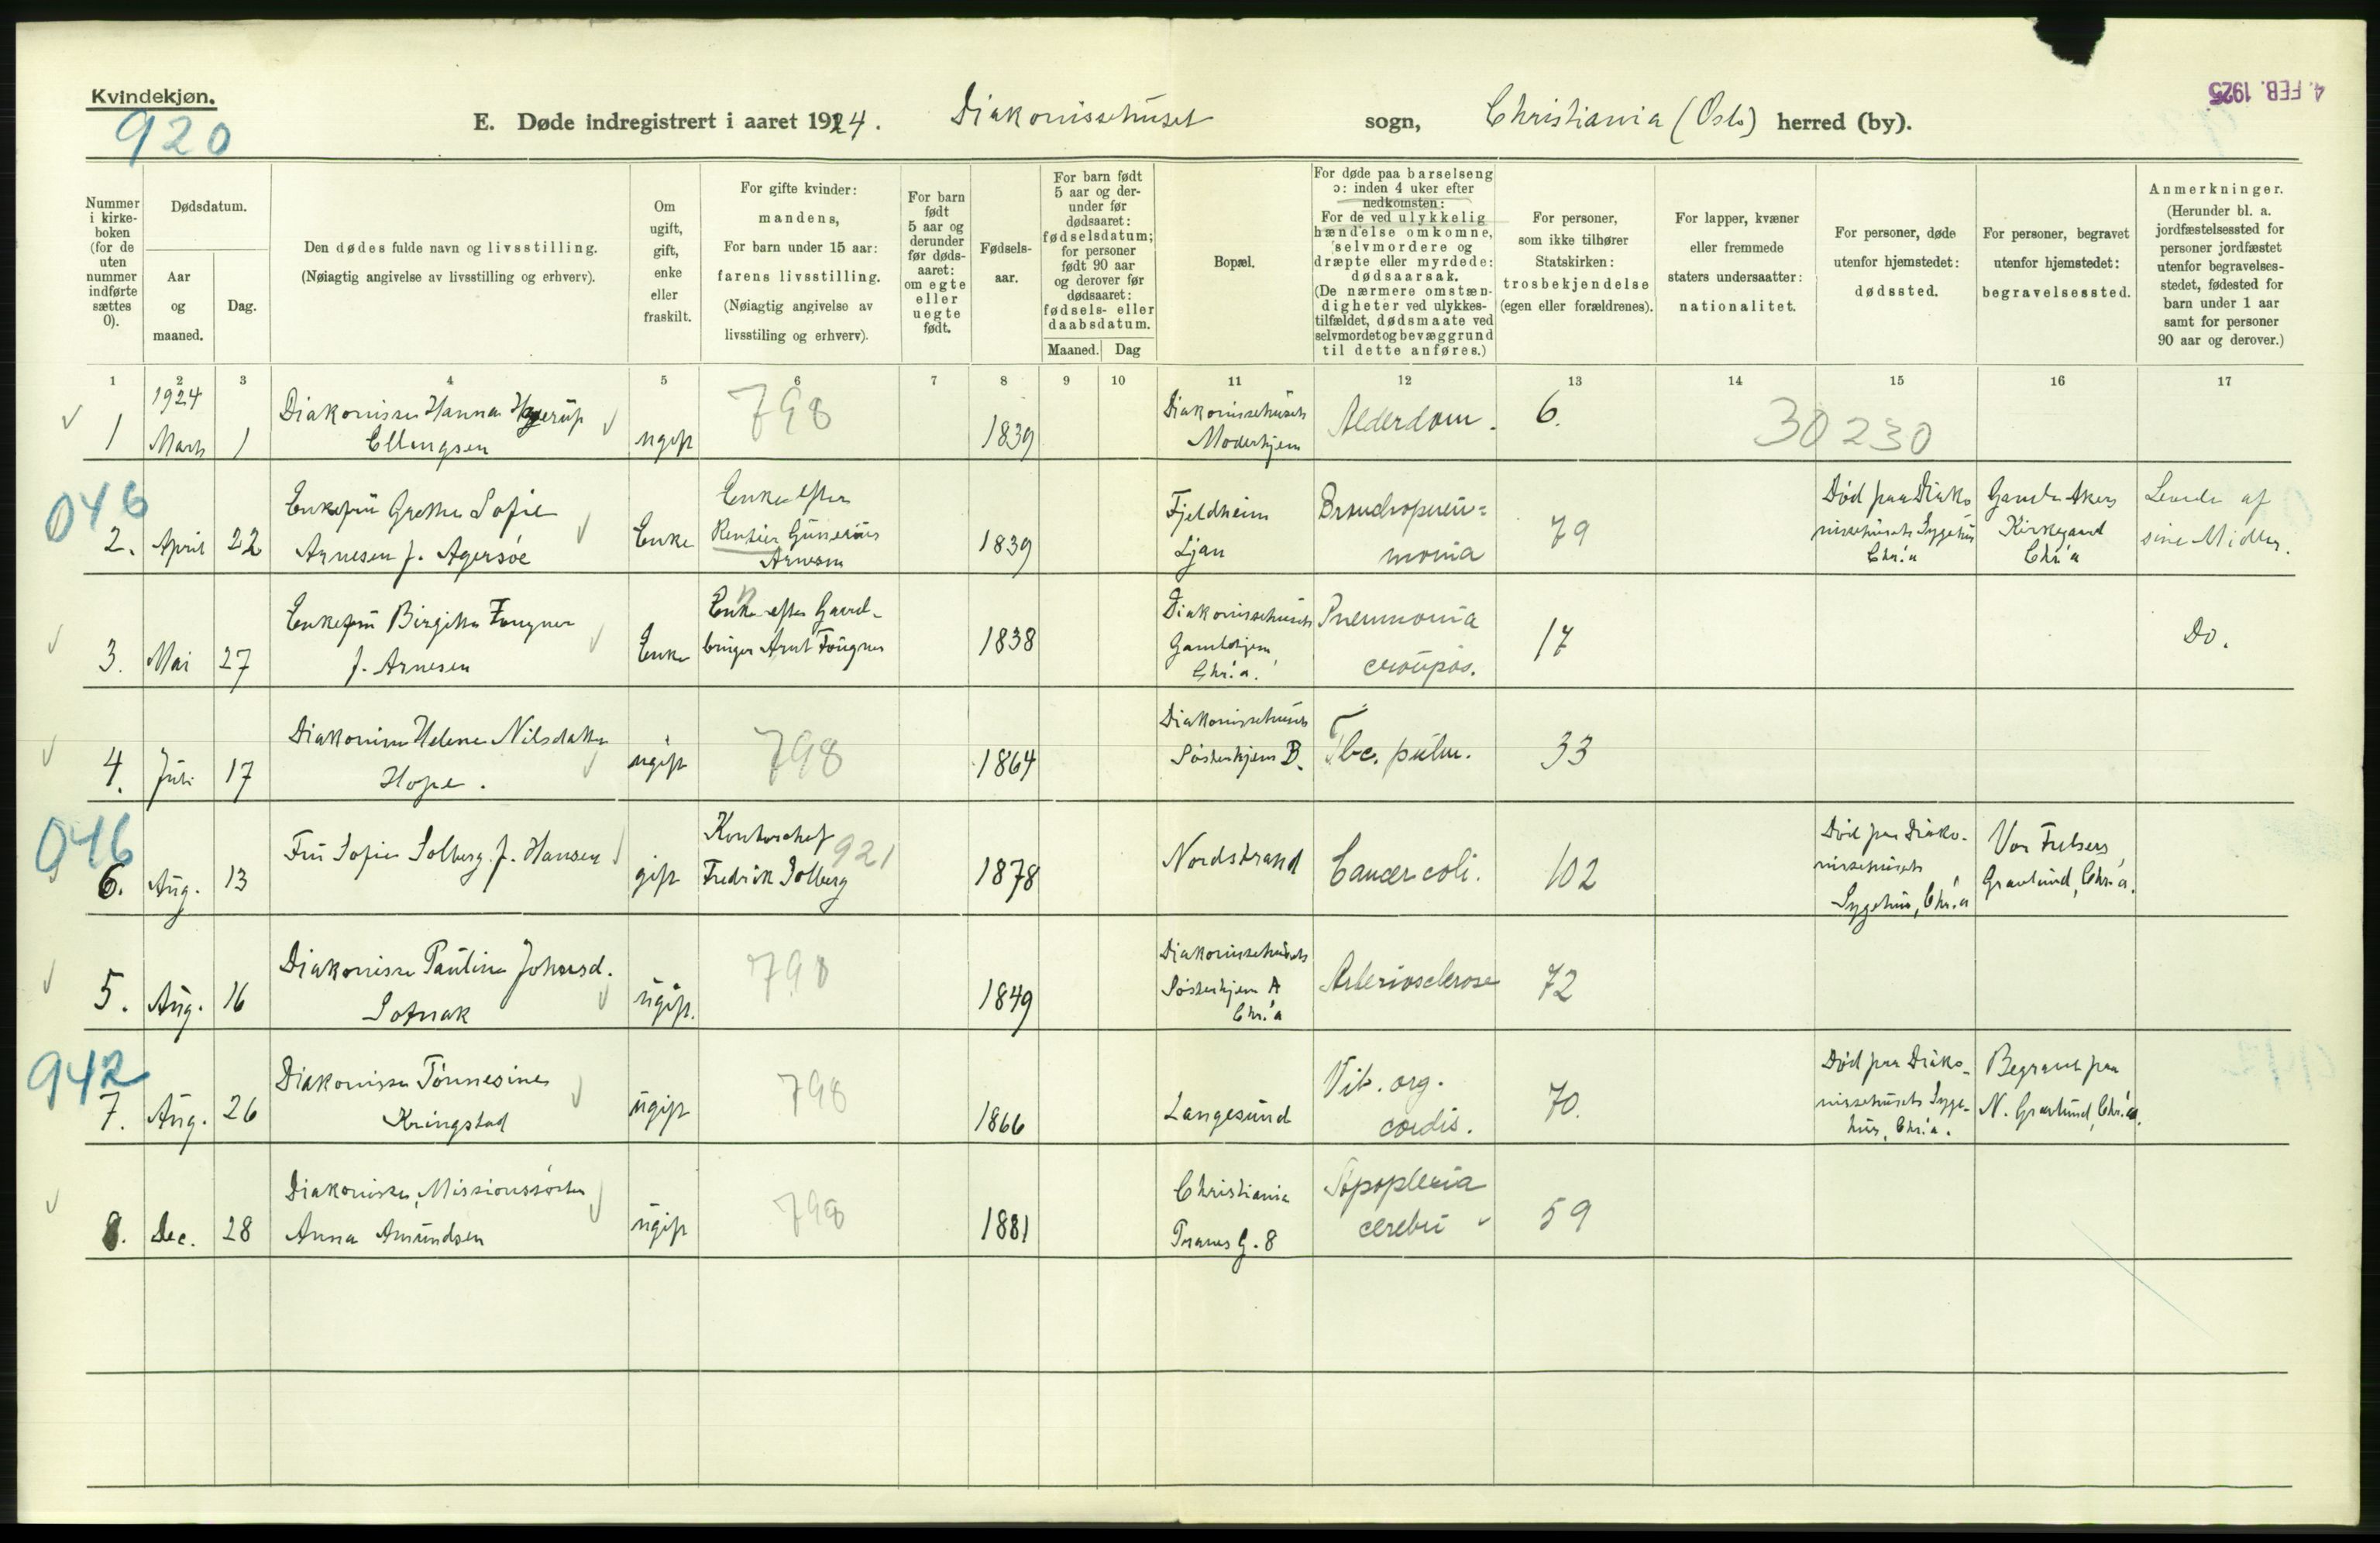 Kvindekjøn.
920
E. Døde indregistrert i aaret 1924. Diakonissehuset sogn, Christiania (Oslo) herred (by).
4. FEB. 1925
Nummer i kirke-boken (for de uten nummer indførte sættes 0).
Dødsdatum.
Aar og maaned.
Dag.
Den dødes fulde navn og livsstilling.
(Nøiagtig angivelse av livsstilling og erhverv).
Om ugift, gift, enke eller fraskilt.
For gifte kvinder: mandens,
For barn under 15 aar: farens livsstilling.
(Nøiagtig angivelse av livsstiling og erhverv).
For barn født 5 aar og derunder før døds-aaret: om egte eller uegte født.
Fødsels-aar.
For barn født 5 aar og der-under før dødsaaret: fødselsdatum; for personer født 90 aar og derover før dødsaaret: fødsels- eller daabsdatum.
Maaned. Dag
Bopæl.
For døde paa barselseng ɔ: inden 4 uker efter nedkomsten:
For de ved ulykkelig hændelse omkomne, selvmordere og dræpte eller myrdede: dødsaarsak.
(De nærmere omstæn-digheter ved ulykkes-tilfældet, dødsmaate ved selvmordet og bevæggrund til dette anføres.)
For personer, som ikke tilhører Statskirken: trosbekjendelse (egen eller forældrenes).
For lapper, kvæner eller fremmede staters undersaatter: nationalitet.
For personer, døde utenfor hjemstedet: dødssted.
For personer, begravet utenfor hjemstedet: begravelsessted.
Anmerkninger.
(Herunder bl. a. jordfæstelsessted for personer jordfæstet utenfor begravelses-stedet, fødested for barn under 1 aar samt for personer 90 aar og derover.)
1 2 3 4 5 6 7 8 9 10 11 12 13 14 15 16 17
1924
1 Marts 1 Diakonisse Hanna Hagerup
Ellingsen
ugift 798 1839
Diakonissehusets
Moderhjem
Alderdom. 6. 30230
046
2. April 22 Enkefru Grethe Sofie
Arnesen f. Agersøe
Enke
Enke efter
Rentier Gunerius
Arnesen
1839
Fjeldheim
Ljan
Bronchopneu=
monia
79
Død paa Diako
nissehusets Sygehus
Chr.a
Gamle Akers
Kirkegaard
Chr.a
Levede af
sine Midler.
3. Mai 27 Enkefru Birgitte Fougner
f. Arnesen
Enke
Enke efter Gaard-
bruger Arnt Fougner
1838
Diakonissehusets
Gamlehjem
Chr.a.
Pneumonia
croupos.
17
Do.
4. Juli 17 Diakonisse Helene Nilsdatter
Hope.
ugift 798 1864
Diakonissehusets
Søsterhjem B.
Tbc. pulm. 33
046
6. Aug. 13 Fru Sofie Solberg f. Hansen
gift
Kontorchef 921
Fredrik Solberg
1878 Nordstrand Cancer coli. 102
Død paa Diako-
nissehusets
Sygehus, Chr.a
Vor Frelsers
Gravlund, Chr.a.
5. Aug. 16 Diakonisse Pauline Johnsd.
Sotnak
ugift. 798 1849
Diakonissehusets
Søsterhjem A
Chr.a
Arteriosclerose 72
942
7. Aug. 26 Diakonisse Tønnesine
Kringstad
ugift 798 1866 Langesund
Vit. org.
cordis.
70.
Død paa Diako-
nissehusets Syge-
hus, Chr.a.
Begravet paa
N. Gravlund, Chr.a.
8. Dec. 28 Diakonisse, Missionssøster
Anna Amundsen
ugift 798 1881
Christiania
Pranes G. 8
Apoplexia
cerebri
59